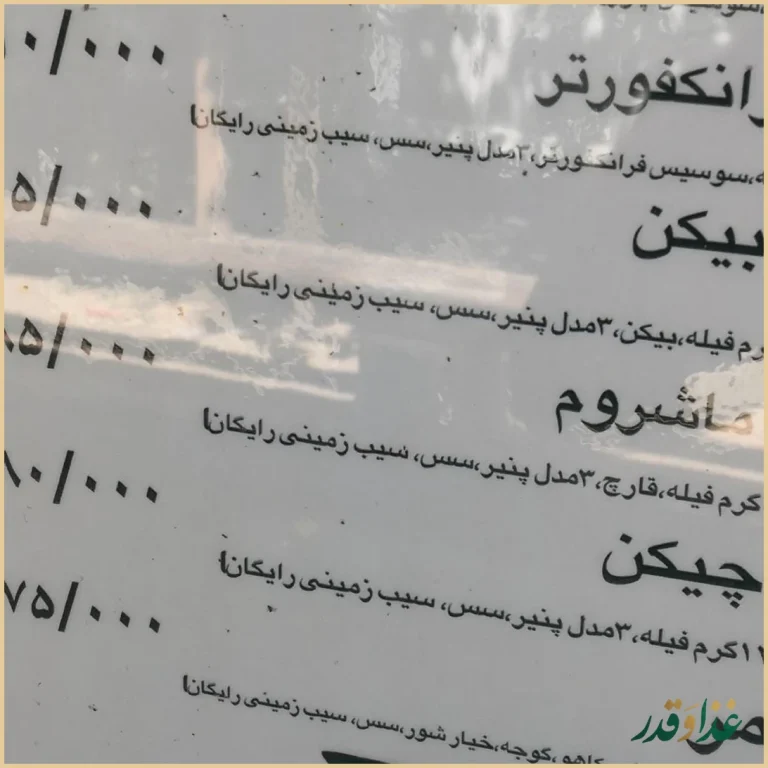 ۰/۰۰۰
فرانکفورتر
سوسیس فرانکفورتر،۳مدل پنیر،سس، سیب زمینی رایگان!
۵/۰۰۰
بیکن
فیله،بیکن،۳مدل پنیر،سس، سیب زمینی رایگان!
۸۵/۰۰۰
ماشروم
گرم فیله،قارچ،۳مدل پنیر،سس، سیب زمینی رایگان!
۸۰/۰۰۰
چیکن
گرم فیله،۳مدل پنیر،سس، سیب زمینی رایگان!
۷۵/۰۰۰
کاهو،گوجه،خیار شور،سس، سیب زمینی رایگان!
غذا و قدر